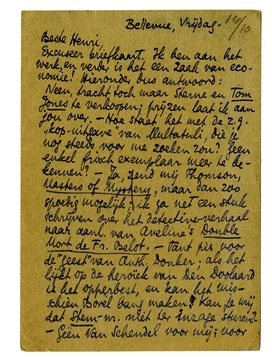 Bellevue, Vrijdag. 14/10
Beste Henri,
Excuseer briefkaart. Ik ben aan het
werk, en verder is het een zaak van eco-
nomie! Hieronder dus antwoord:
Neen, tracht toch maar Sterne en Tom
Jones te verkoopen; prijzen laat ik aan
jou over. – Hoe staat het met de z.g.
"kop-uitgave" van Multatuli, die je
nog steeds voor me zoeken zou? Geen
enkel frisch exemplaar meer te be-
kennen? – Ja, zend mij Thomson,
Masters of Mystery, maar dan zoo
spoedig mogelijk; ik ga net een stuk
schrijven over het detective-verhaal
naar aanl. van Aveline's Double
Mort de Fr. Belot. – Vant pis voor
de geest van Anth. Donker: als het
lijkt op de heroïek van Den Doolaard
is het opperbest, en kan het mis-
schien Borel bang maken! Kan je mij
dat Stem-nr. niet ter inzage sturen?
– Géén Van Schendel voor mij; voor